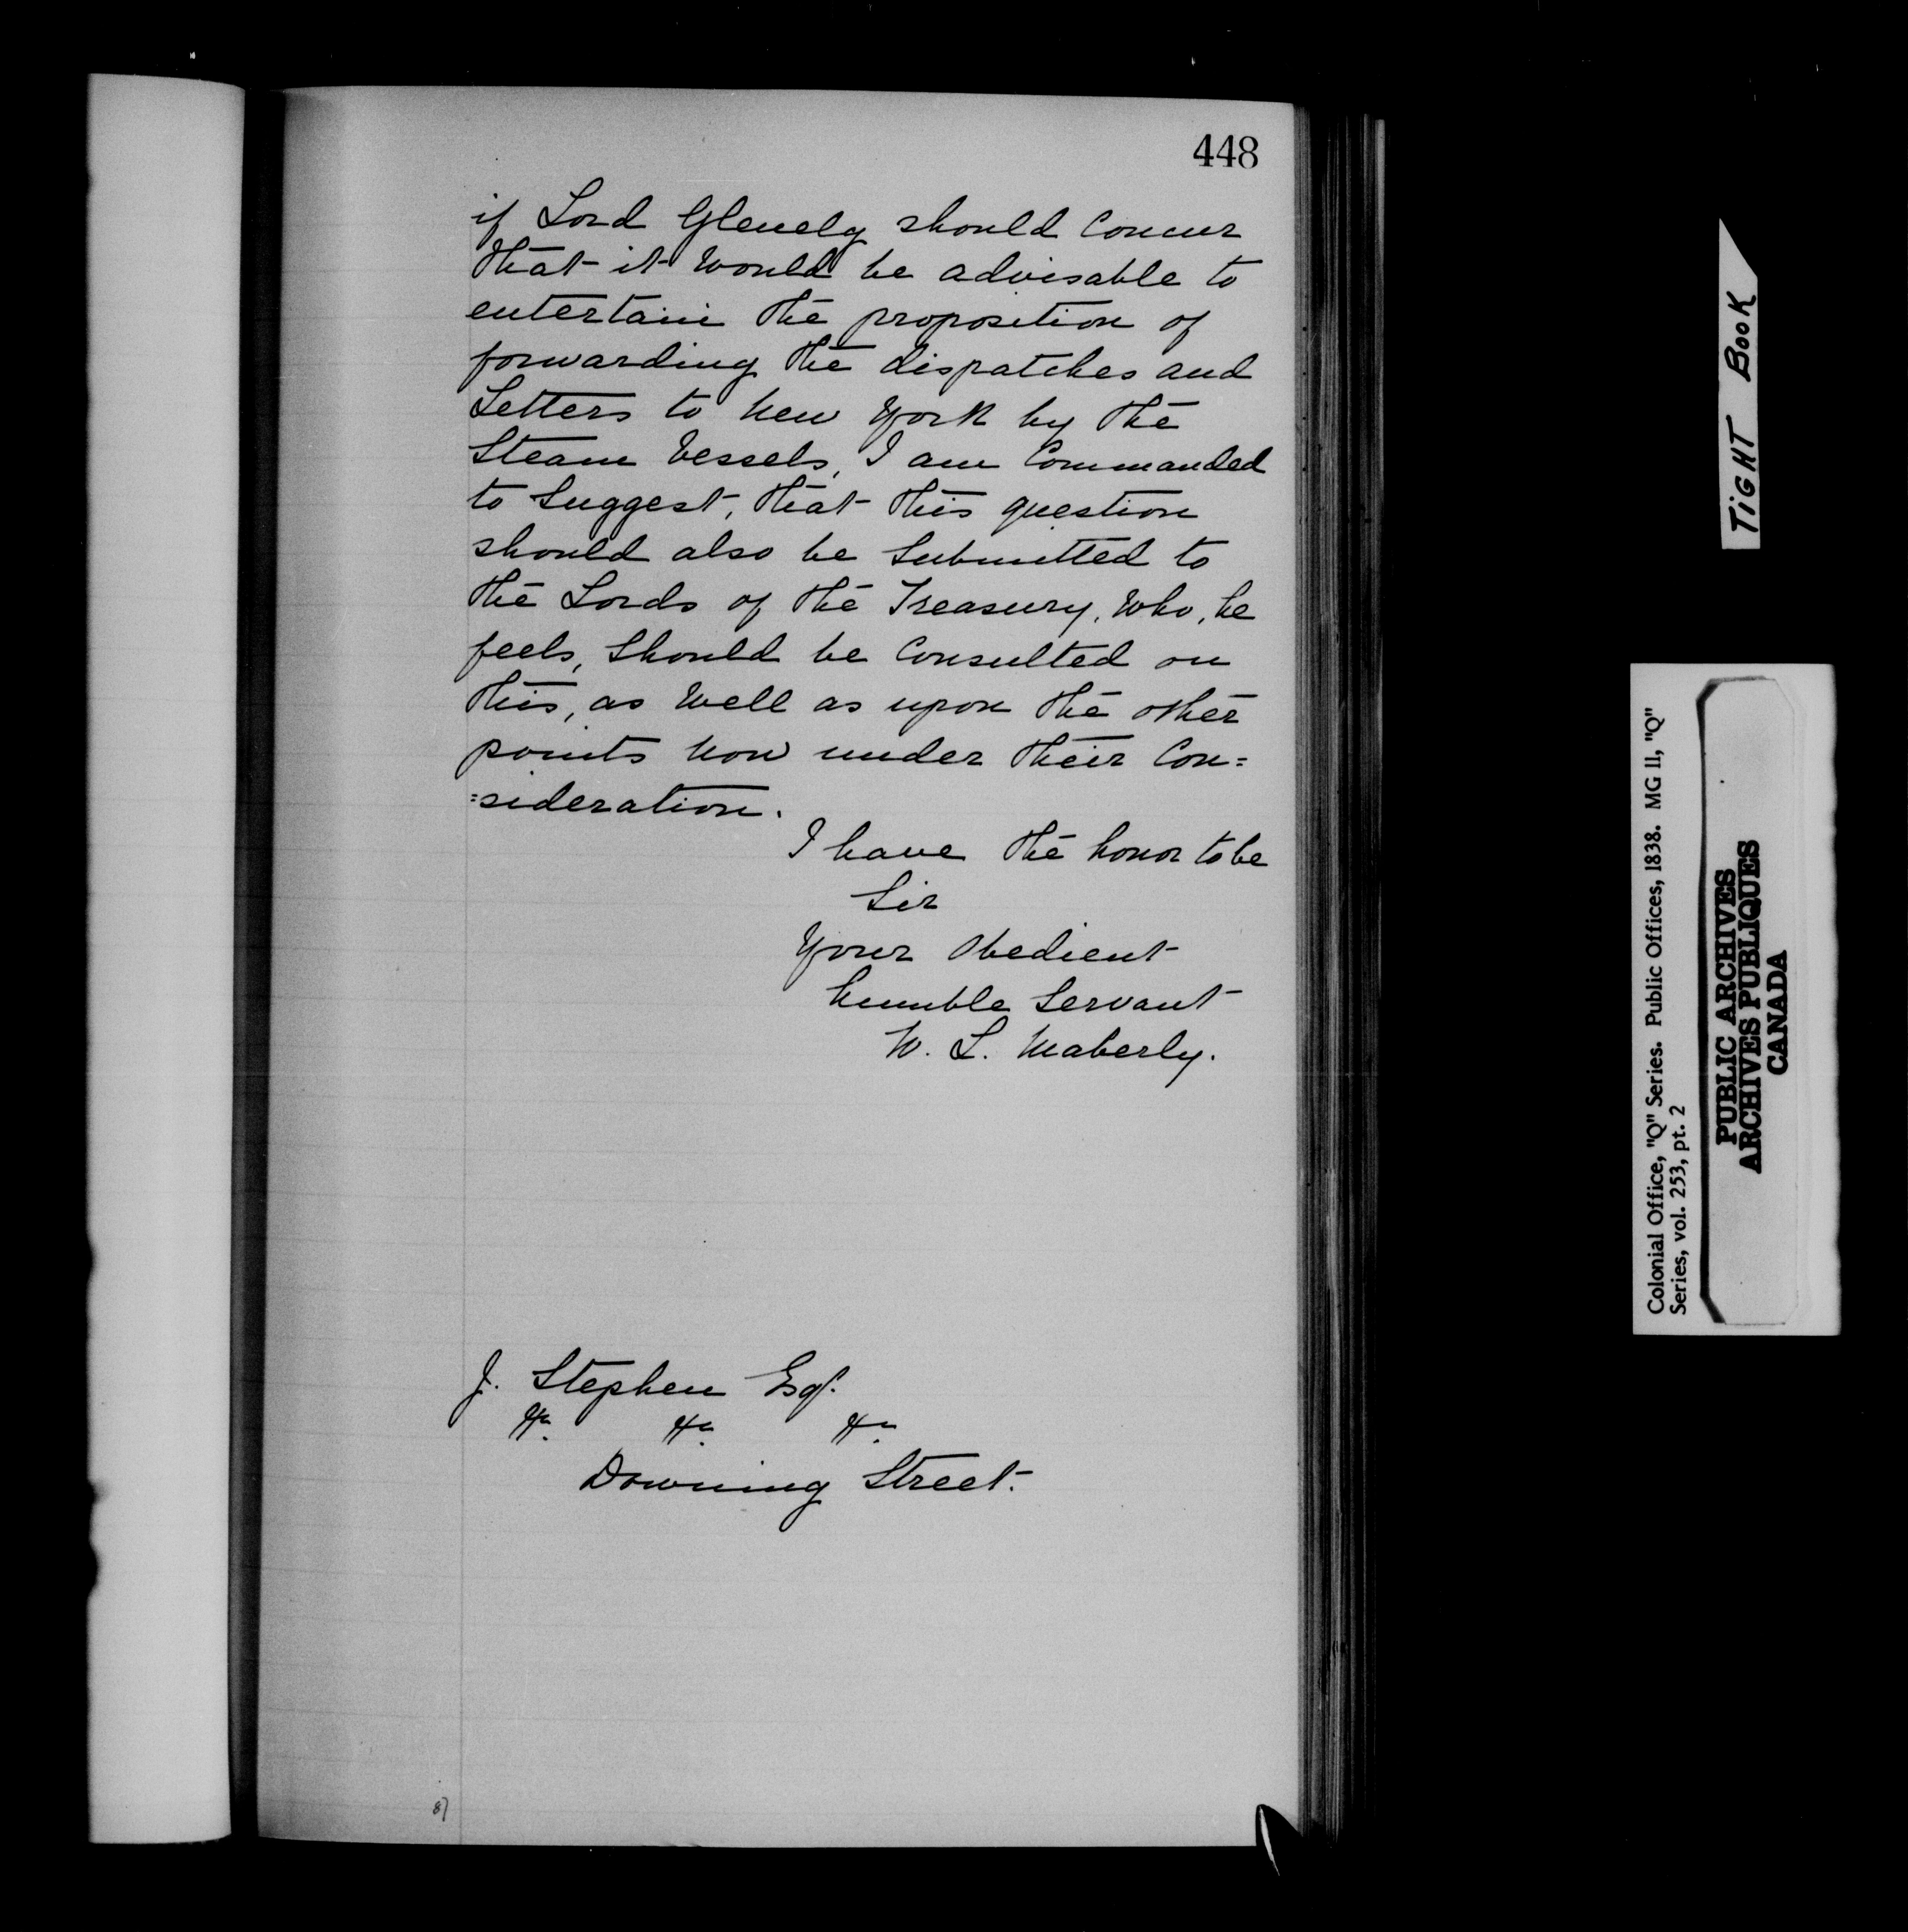 448
if Lord Glenelg should Concur
that it would be advisable to
entertain the proposition of
forwarding the dispatches and
Letters to New York by the
Steam Vessels, I am Commanded
to Suggest, that this question
should also be Submitted to
the Lords of the Treasury, Who, he
feels, Should be Consulted on
this, as Well as upon the other
points Now under their Con=
=sideration.
I have the honor to be
Sir
Your Obedient
humble Servant
W. L. Maberly.
J. Stephen Esqr.
Downing Street.
87
TIGHT BOOK
Colonial Office, "Q" Series. Public Offices, 1838. MG 11, "Q"
Series, vol. 253, pt. 2
PUBLIC ARCHIVES
ARCHIVES PUBLIQUES
CANADA